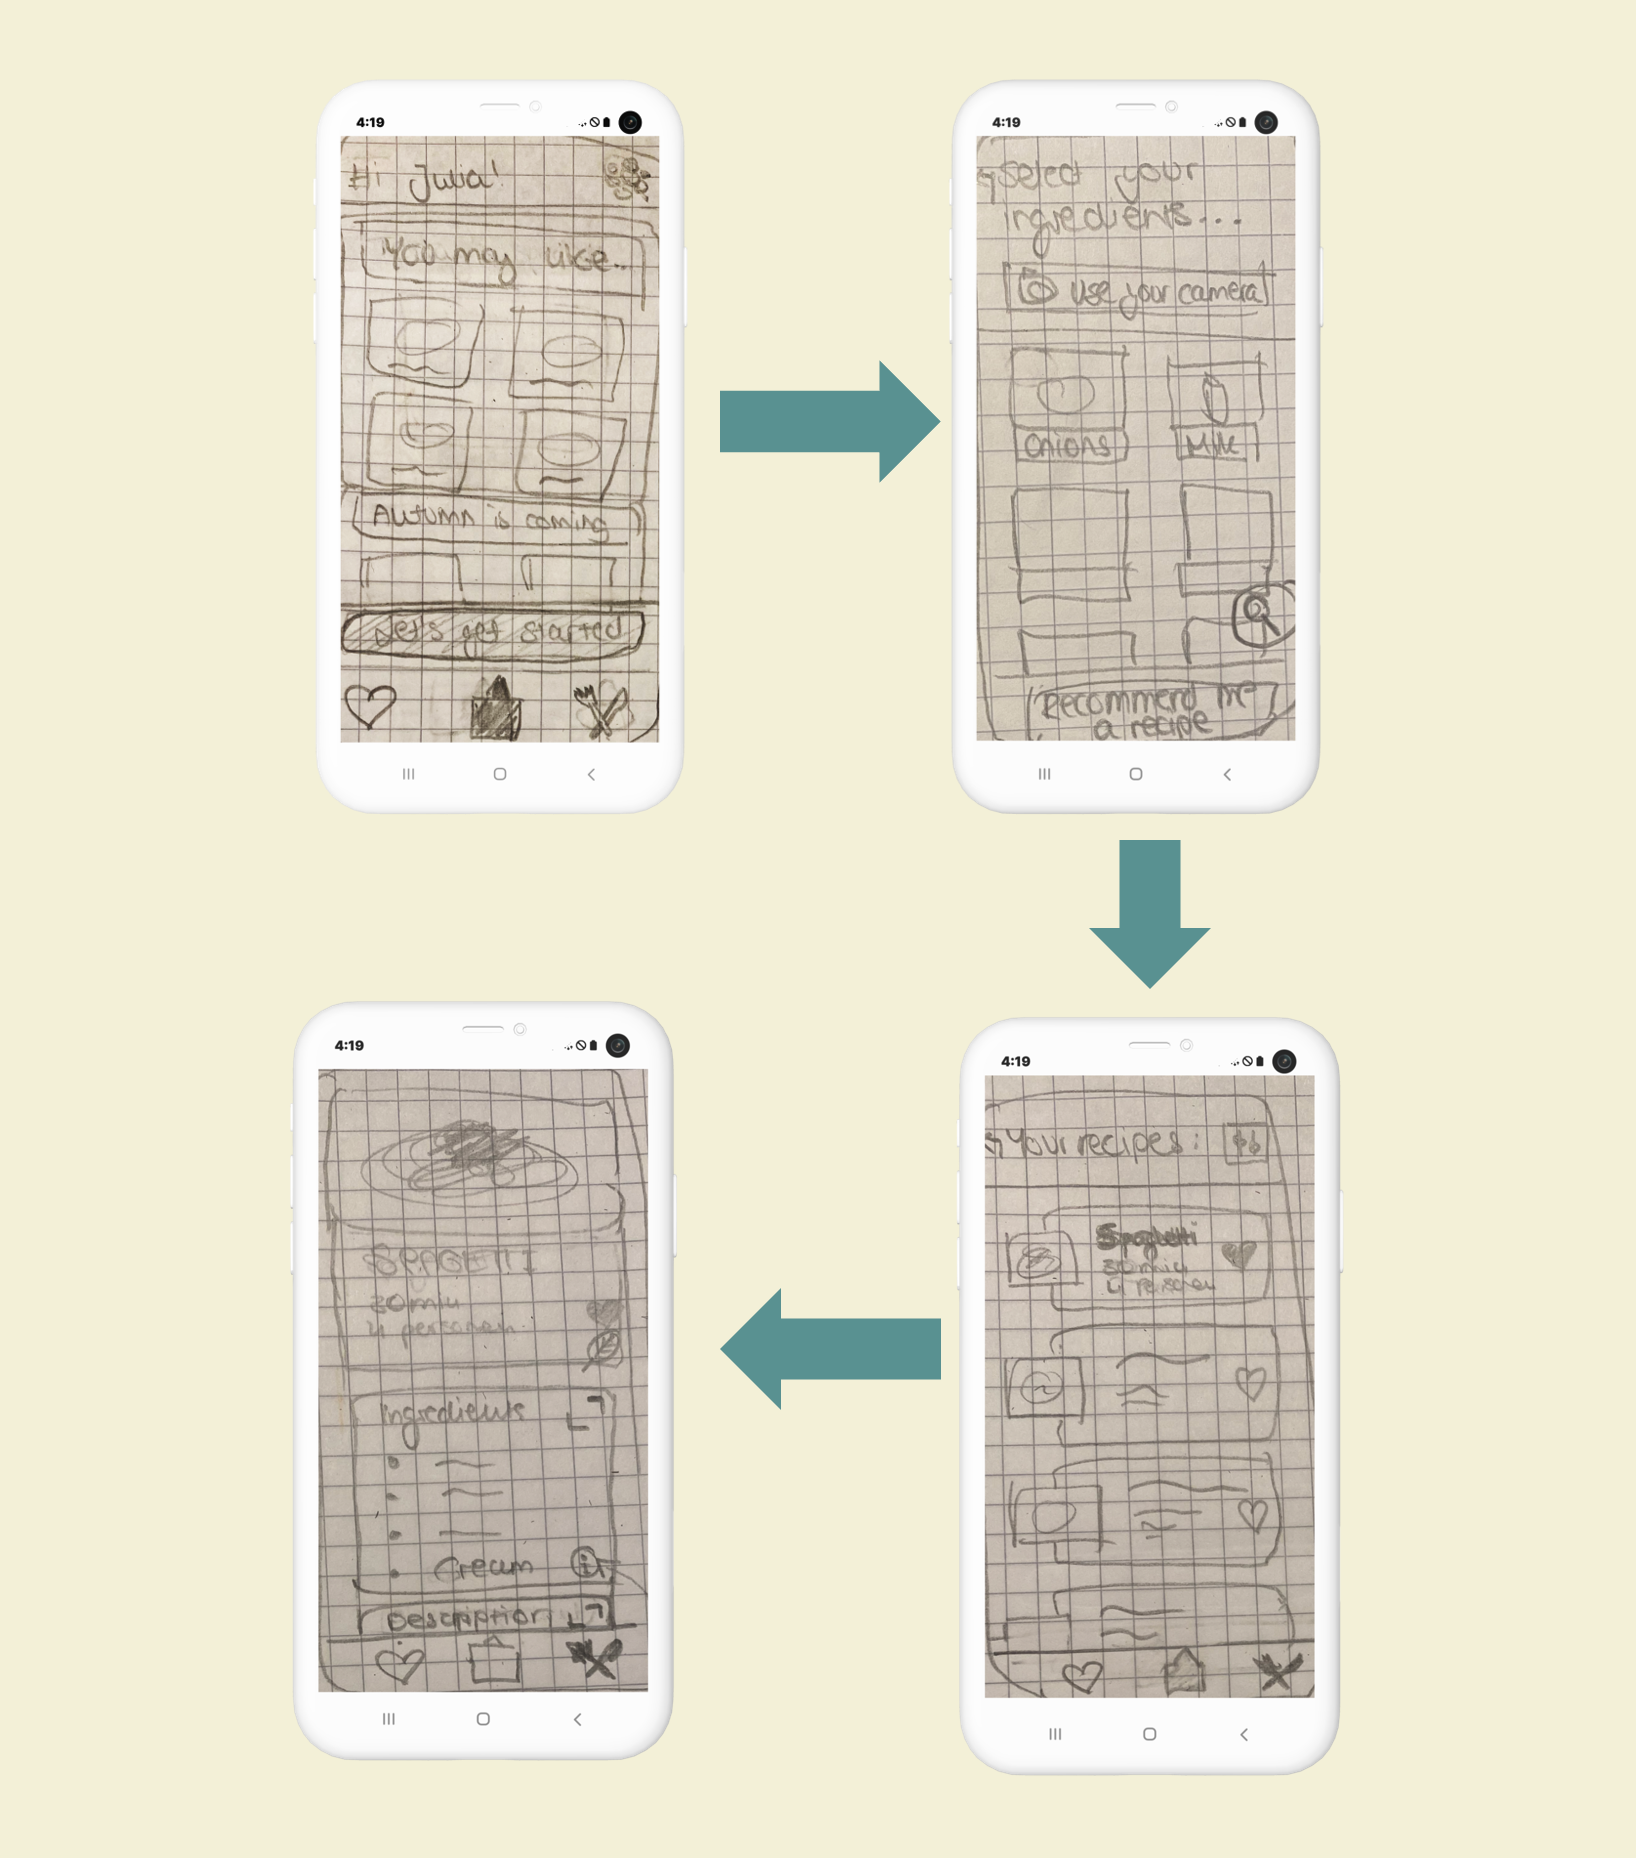 4:19
Hi Julia!
You may like..
Autumn is coming
Let's get started
4:19
Select your
ingredients...
Use your camera
Onions
Milk
Recommend me
a recipe
4:19
Your recipes:
Spaghetti
30 min
4 personen
4:19
SPAGETTI
30 min
4 personen
Ingredients
Cream
i
Description